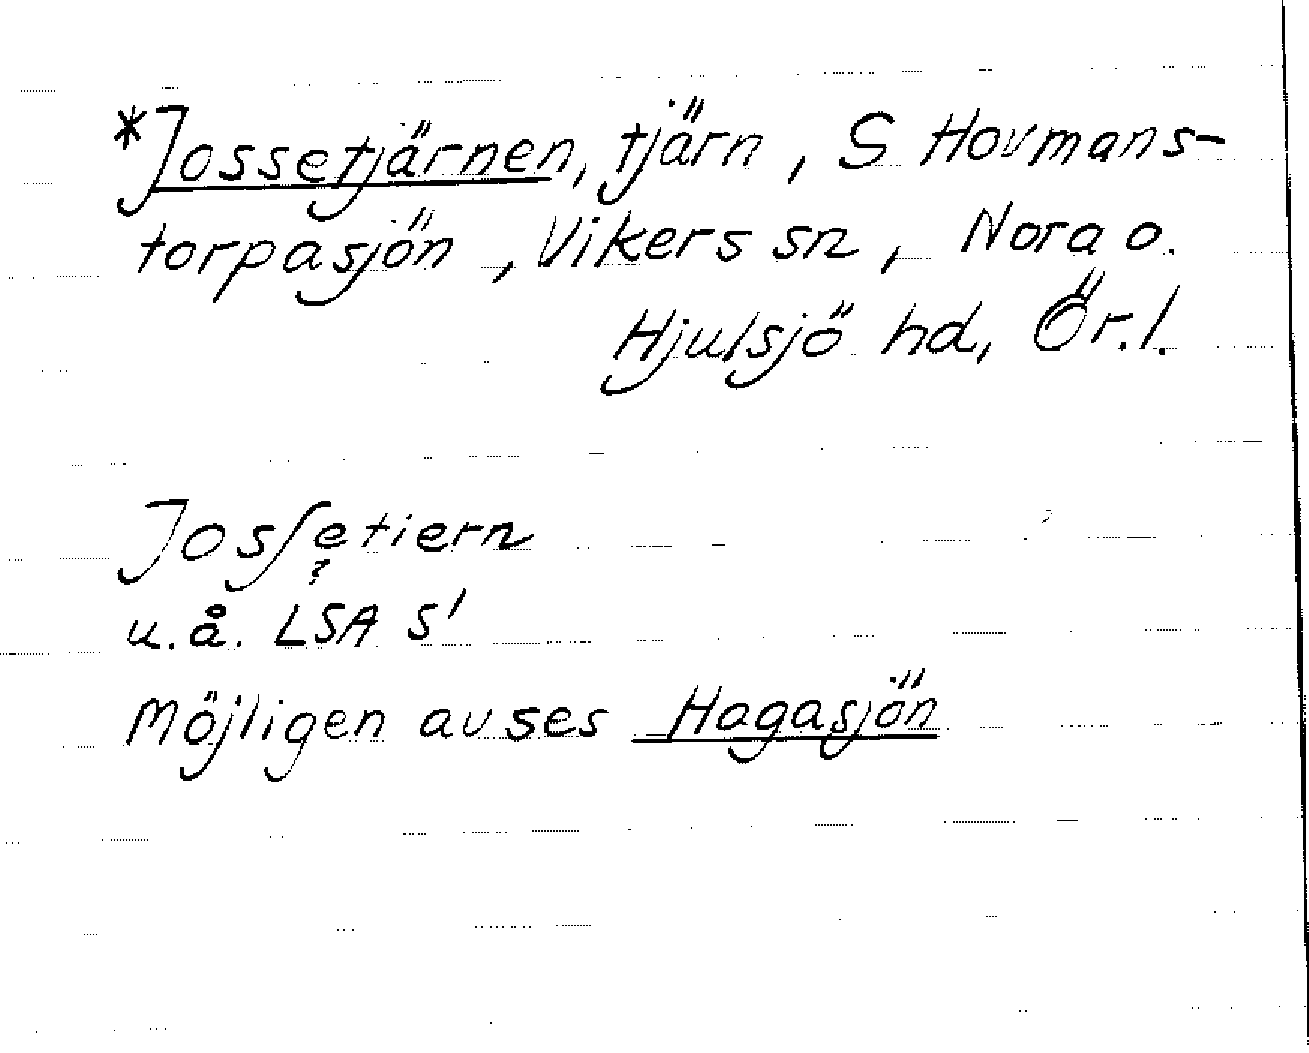 *Jossetjärnen, tjärn, S Hovmans-
torpasjön, Vikers sn, Nora o.
Hjulsjö hd, Ör.l.
Josſetiern
?
u.å. LSA S'
Möjligen avses Hagasjön